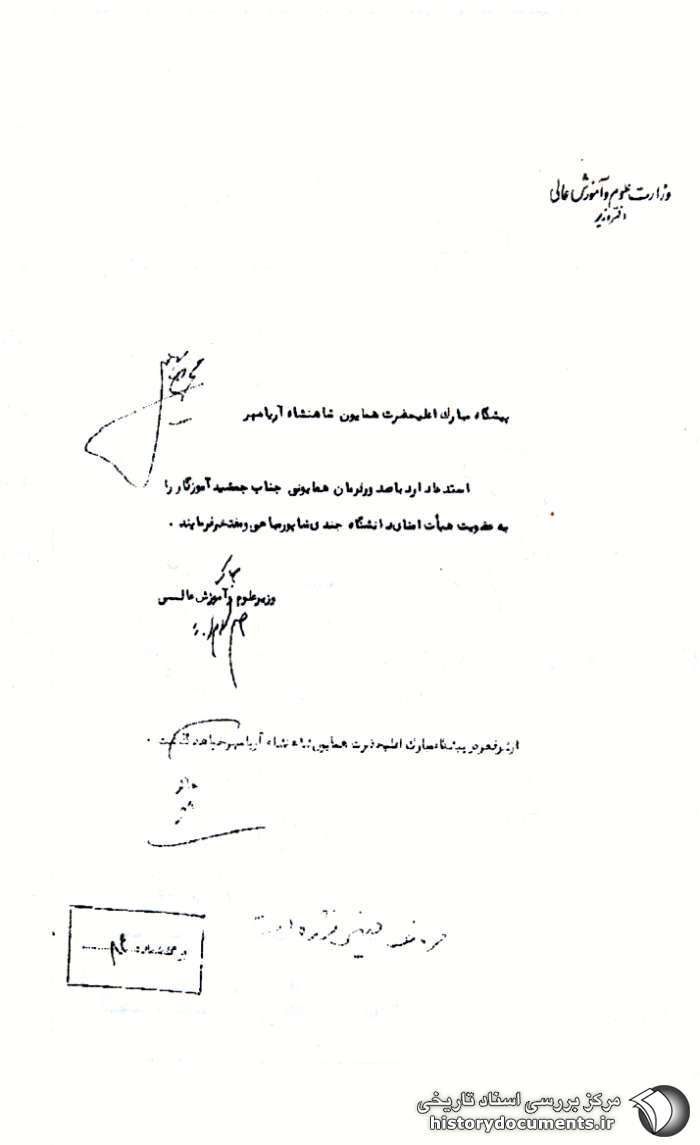 وزارت علوم و آموزش عالی
دفتر وزیر
پیشگاه مبارک اعلیحضرت همایون شاهنشاه آریامهر
استدعا دارد با صدور فرمان همایونی جناب جمشید آموزگار را
به عضویت هیأت امنای دانشگاه جندی شاپور مباهی و مفتخر فرمایند .
وزیر علوم و آموزش عالی
از شرفعرض پیشگاه مبارک اعلیحضرت همایون شاهنشاه آریامهر خواهد گذشت .
برگ شماره
مرکز بررسی اسناد تاریخی
historydocuments.ir